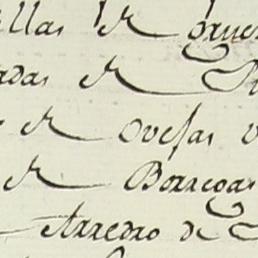 llas de grues
adas de
de Ovejas
de Borregas
Arredro de